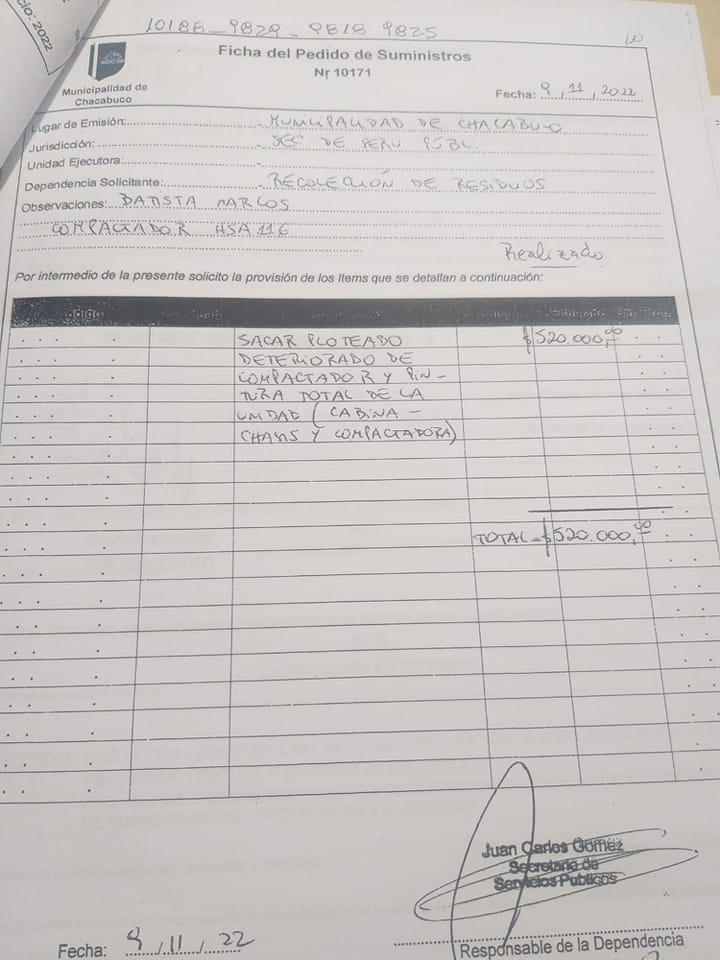 cio: 2022
10186 - 9829 - 9818 9825
Ficha del Pedido de Suministros
Nr 10171
Municipalidad de
Chacabuco
Fecha: 9, 11, 2022
Lugar de Emisión: - MUNICIPALIDAD DE CHACABUCO
Jurisdicción: - SEC DE SERV PUBL.
Unidad Ejecutora: -
Dependencia Solicitante: - RECOLECCIÓN DE RESIDUOS
Observaciones: BATISTA MARCOS
COMPACTADOR HSA 116
Realizado
Por intermedio de la presente solicito la provisión de los Items que se detallan a continuación:
SACAR PLOTEADO $520.000,00
DETERIORADO DE
COMPACTADOR Y PIN-
TURA TOTAL DE LA
UNIDAD (CABINA -
CHASIS Y COMPACTADORA)
TOTAL - $520.000,00
Juan Carlos Goméz
Secretario de
Servicios Publicos
Fecha: 9, 11, 22
Responsable de la Dependencia